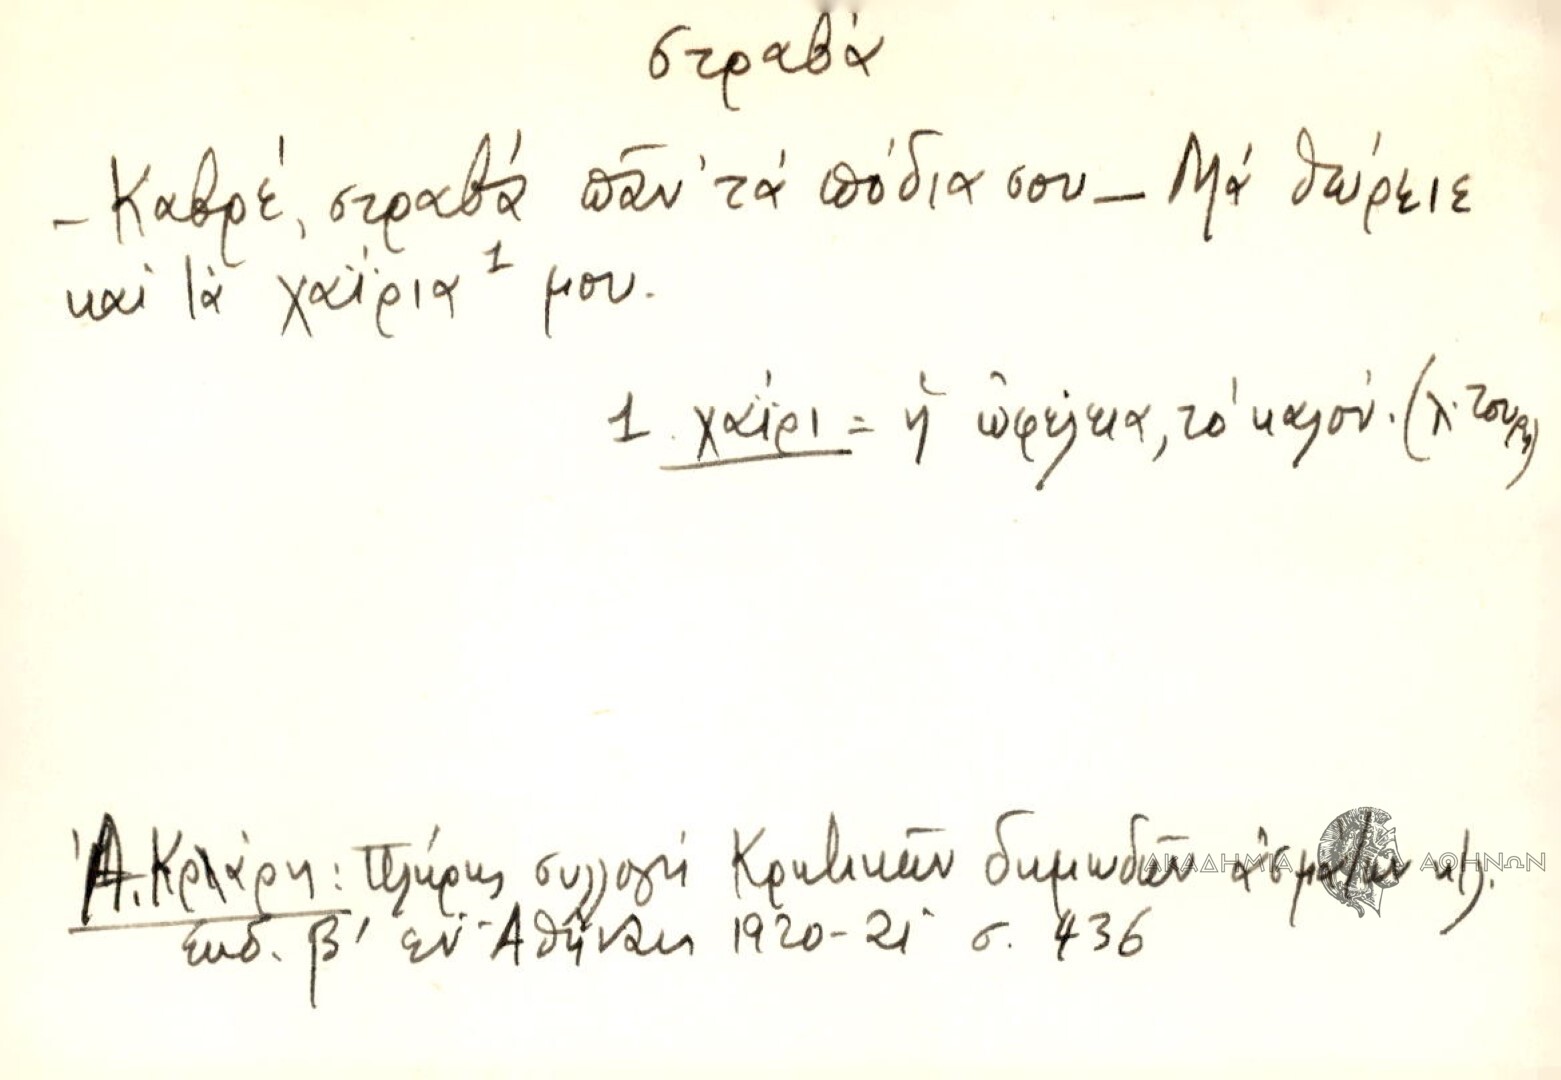 στραβά
– Καβρέ, στραβά πᾶν' τά πόδια σου – Μά θώρειε
καί τά χαΐρια ¹ μου.
1. χαΐρι = ἡ ὠφέλεια, τό καλόν. (λ. τουρκ)
Ἀ. Κριάρη: Πλήρης συλλογή Κρητικῶν δημωδῶν ᾀσμάτων κλ).
ἐκδ. β' ἐν Ἀθήναις 1920-21 σ. 436
ΑΚΑΔΗΜΙΑ ΑΘΗΝΩΝ